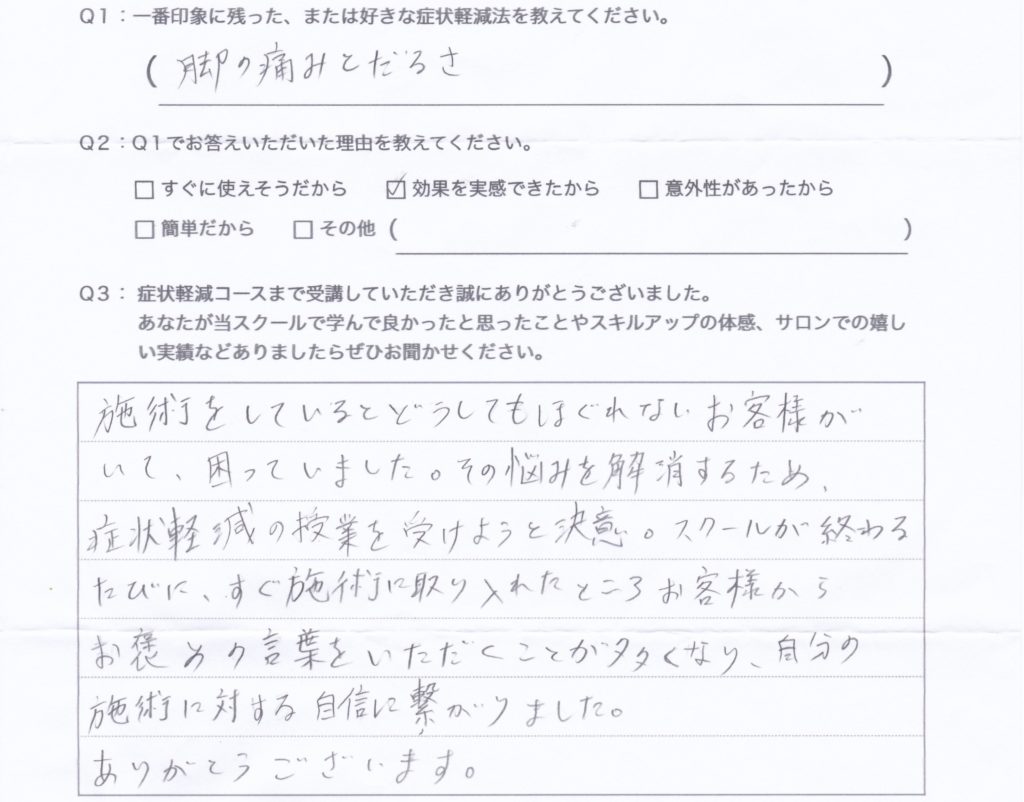 Q1：一番印象に残った、または好きな症状軽減法を教えてください。
( 脚の痛みとだるさ )
Q2：Q1でお答えいただいた理由を教えてください。
□ すぐに使えそうだから ☑ 効果を実感できたから □ 意外性があったから
□ 簡単だから □ その他 ( )
Q3： 症状軽減コースまで受講していただき誠にありがとうございました。
あなたが当スクールで学んで良かったと思ったことやスキルアップの体感、サロンでの嬉し
い実績などありましたらぜひお聞かせください。
施術をしているとどうしてもほぐれないお客様が
いて、困っていました。その悩みを解消するため、
症状軽減の授業を受けようと決意。スクールが終わる
たびに、すぐ施術に取り入れたところお客様から
お褒めの言葉をいただくことが多くなり、自分の
施術に対する自信に繋がりました。
ありがとうございます。